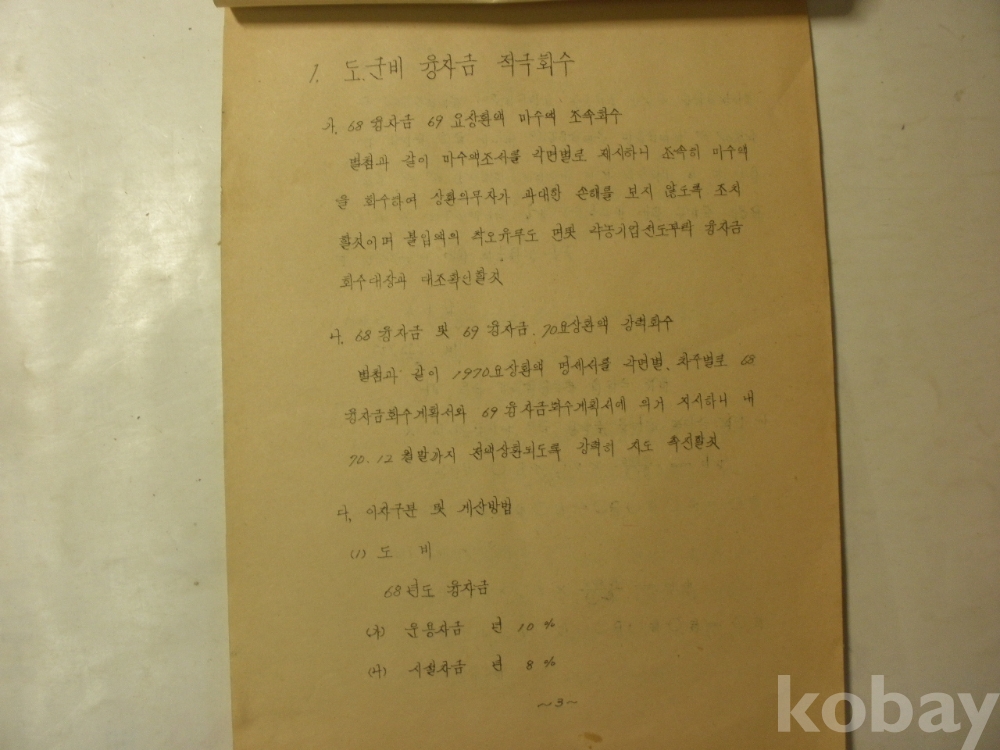 1. 도.군비 융자금 적극회수
가. 68 융자금 69 요상환액 미수액 조속회수
별첨과 같이 미수액조사를 각면별로 제시하니 조속히 미수액
을 회수하여 상환의무자가 과대한 손해를 보지 않도록 조치
할것이며 불입액의 착오유무도 면및 융자금
회수대장과 대조확인할것
나. 68 융자금 및 69 융자금. 70요상환액 강력회수
별첨과 같이 1970요상환액 명세서를 각면별, 차주별로 68
융자금회수계획서와 69 융자금회수계획서에 의거 지시하니 내
70. 12 월말까지 전액상환되도록 강력히 지도 촉진할것
다. 이자구분 및 계산방법
(1) 도 비
68년도 융자금
(가) 운용자금 년 10 %
(나) 시설자금 년 8 %
~3~
kobay